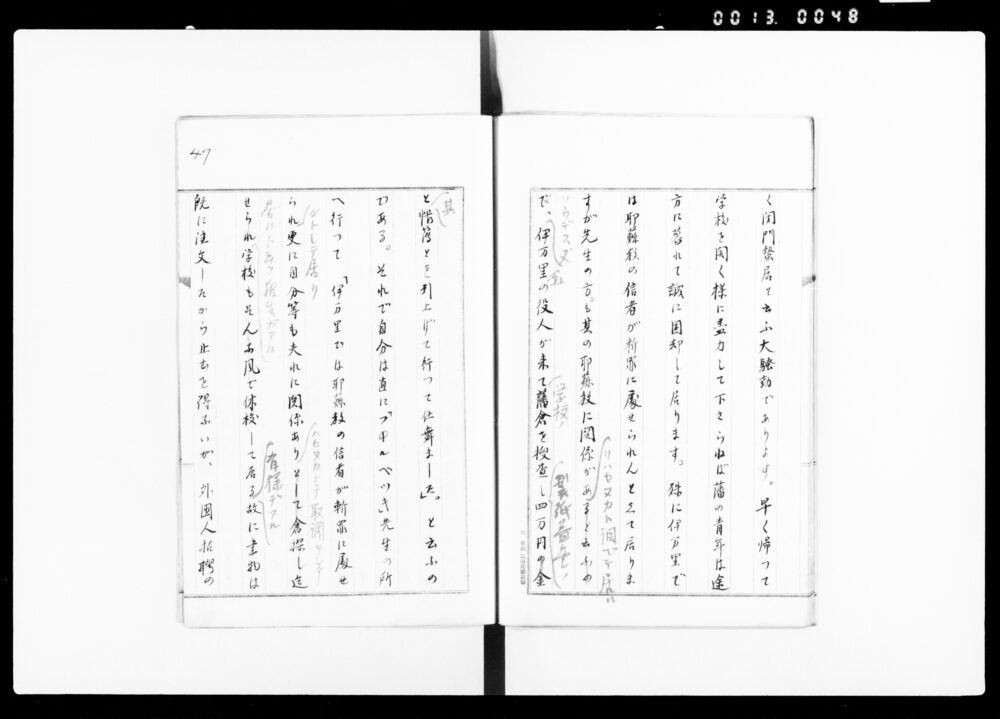 0013 0048
く閉門蟄居と云ふ大騒動であります。早く帰つて
学校を開く様に盡力して下さらねば藩の青年は途
方に暮れて誠に困却して居ります。殊に伊万里で
は耶蘇教の信者が斬罪に處せられんとして居りま
すが先生の方も其の耶蘇教に関係があると云ふの
だ、伊万里の役人が来て藩倉を捜査し四万円の金
47
と帳簿とを引上げて行つて仕舞ました」。と云ふの
其
である。それで自分は直に「フルベッキ」先生の所
へ行つて「伊万里では耶蘇教の信者が斬罪に處せ
られ更に自分等も夫れに関係ありとして倉探し迄
せられ学校もそんな風で休校して居る故に書物は
有様デアル
既に注文したから止むを得ないが、外国人招聘の